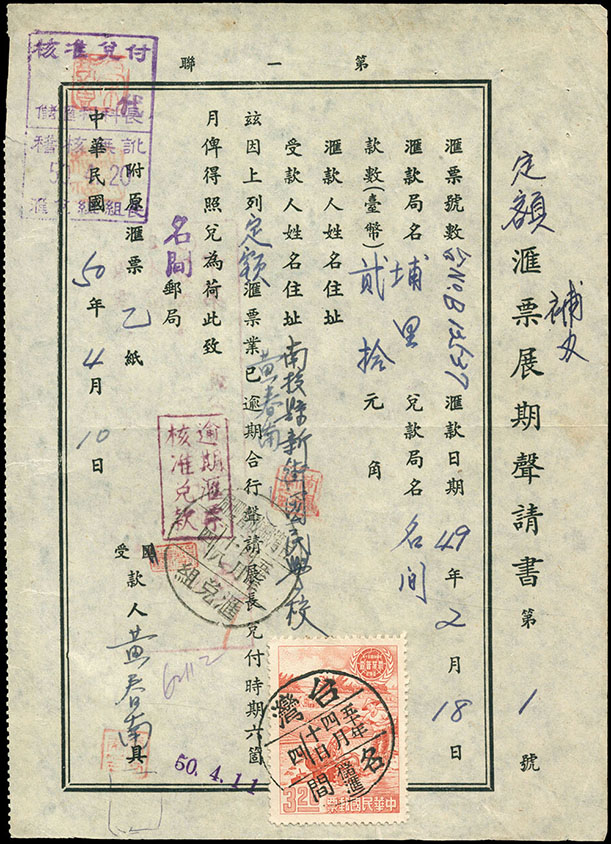 第一聯
定額匯票展期聲請書第1號
補文
匯票號數 NO.B12637 匯款日期49年2月18日
匯款局名 埔里 兌款局名 名间
款數(臺幣)貳拾元 角
匯款人姓名住址
受款人姓名住址 南投縣新街國民學校
黃春南
玆因上列定額匯票業已逾期合行聲請展長兌付時期六箇
月俾得照兌為荷此致
名間郵局
附原匯票乙紙
受款人黃春南具
中華民國50年4月10日
核准兌付
稽核無訛
逾期匯票
核准兌款
匯兌組
60112
50.4.11
台灣
五十年
四月
十四日
儲匯
名間
3.20
中華民國郵票